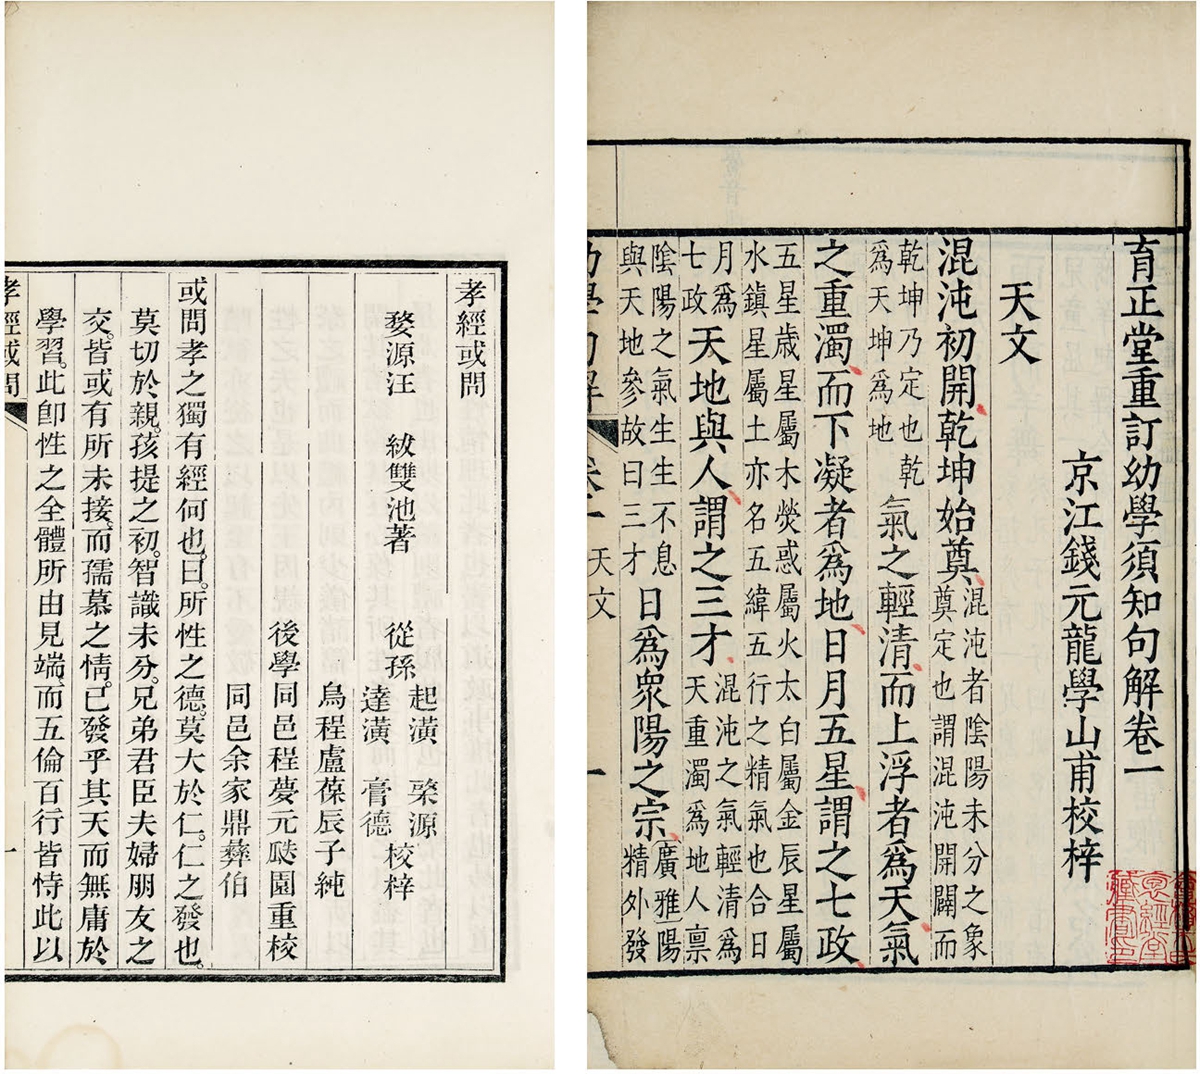 育正堂重訂幼學須知句解卷一
京江錢元龍學山甫校梓
天文
混沌初開乾坤始奠混沌者陰陽未分之象
奠定也謂混沌開闢而
乾坤乃定也乾
為天坤為地
氣之輕清而上浮者爲天氣
之重濁而下凝者爲地日月五星謂之七政
五星歲星屬木熒惑屬火太白屬金辰星屬
水鎮星屬土亦名五緯五行之精氣也合日
月爲
七政
天地與人謂之三才
混沌之氣輕清爲
天重濁爲地人禀
陰陽之氣生生不息
與天地參故曰三才
日爲眾陽之宗
廣雅陽
精外發
幼學句解 卷一 天文 一
孝經或問
婺源汪 紱雙池著 從孫
起潢 棨源
達潢 膏德
校梓
烏程盧葆辰子純
後學同邑程夢元瞇園重校
同邑余家鼎彝伯
或問孝之獨有經何也曰所性之德莫大於仁仁之發也
莫切於親孩提之初智識未分兄弟君臣夫婦朋友之
交皆或有所未接而孺慕之情已發乎其天而無庸於
學習此卽性之全體所由見端而五倫百行皆恃此以
孝經或問 一